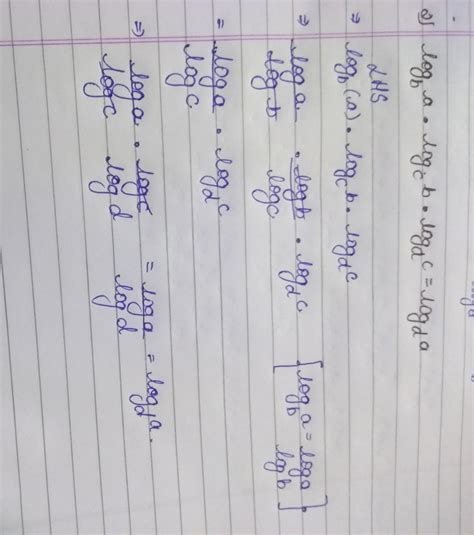 2) log_b a · log_c b · log_d c = log_d a
LHS
⇒ log_b (a) · log_c b · log_d c
⇒ log a / log b · log b / log c · log_d c [log_b a = log a / log b].
= log a / log c · log_d c
⇒ log a / log c · log c / log d = log a / log d = log_d a.